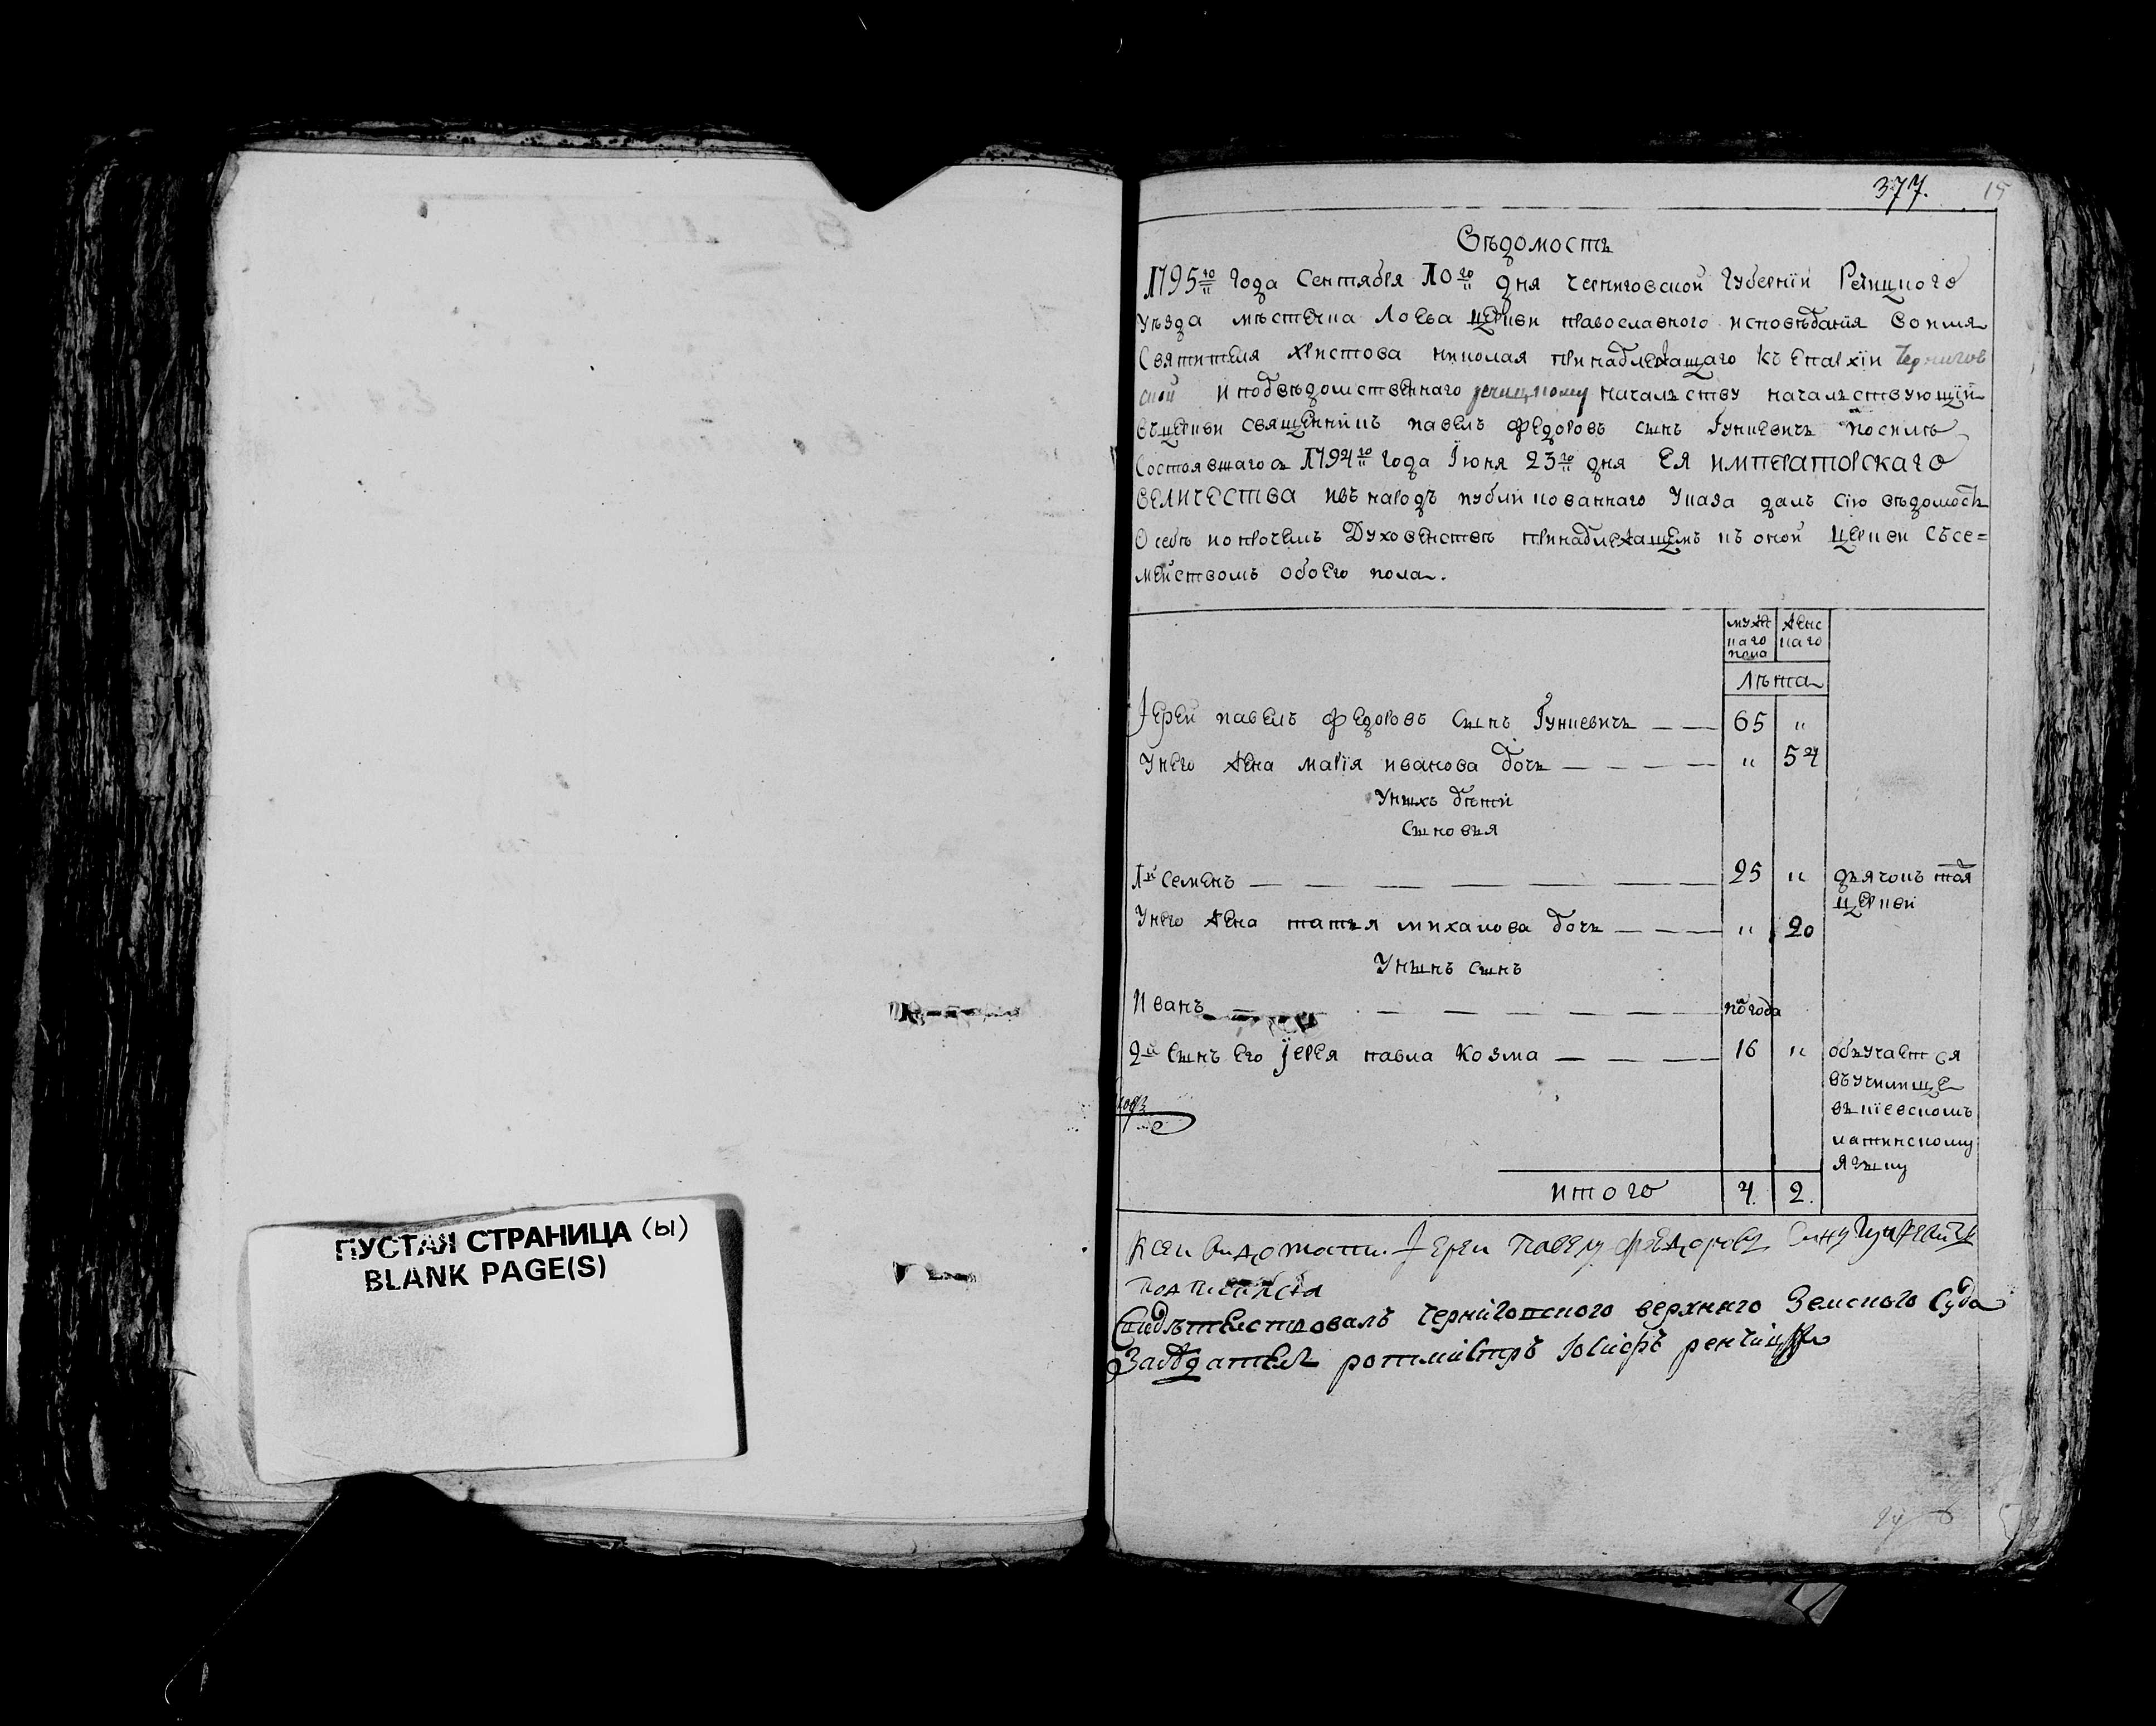 ПУСТАЯ СТРАНИЦА (ы)
BLANK PAGE(S)
377. 15
Вѣдомость
1795го года Сентября 10го дня Черниговской Губернїи Речицкого
Уѣзда мѣстечка Лоева церкви православного исповѣданїя во имя
Святителя Христова николая принадлежащаго къ Епархїи Чернигов
ской и подвѣдомственнаго речицкому началству началствующїй
въ церкви священникъ павелъ федоровъ сынъ Гункевичъ по силѣ
Состоявшагося 1794го года Іюня 23го дня ЕЯ ИМПЕРАТОРСКАГО
ВЕЛИЧЕСТВА и въ народъ публикованнаго Указа далъ сїю вѣдомость
О себѣ и о прочемъ Духовенствѣ принадлежащемъ къ оной церкви съ се=
мействомъ обоего пола.
мужс каго пола
женс каго
Лѣта
Іерей павелъ федоровъ сынъ Гункевичъ 65 "
У него жена марїя иванова дочь " 54
У нихъ дѣти
Сыновья
1й Семенъ 25 " дьячокъ тоя церкви
У него жена татья михалова дочь " 20
У нихъ сынъ
Иванъ полгода
2й сынъ его їерея павла козма 16 " обучается
въ училище
въ кїевскомъ
латинскому
языку
итого 4. 2.
К сей видомости Іереи Павелъ Федоровъ Синъ Гункевичъ
подписалса
Свидѣтелствовалъ черниговского верхнего Земского Суда
Засѣдатель ротмистръ Юсифъ